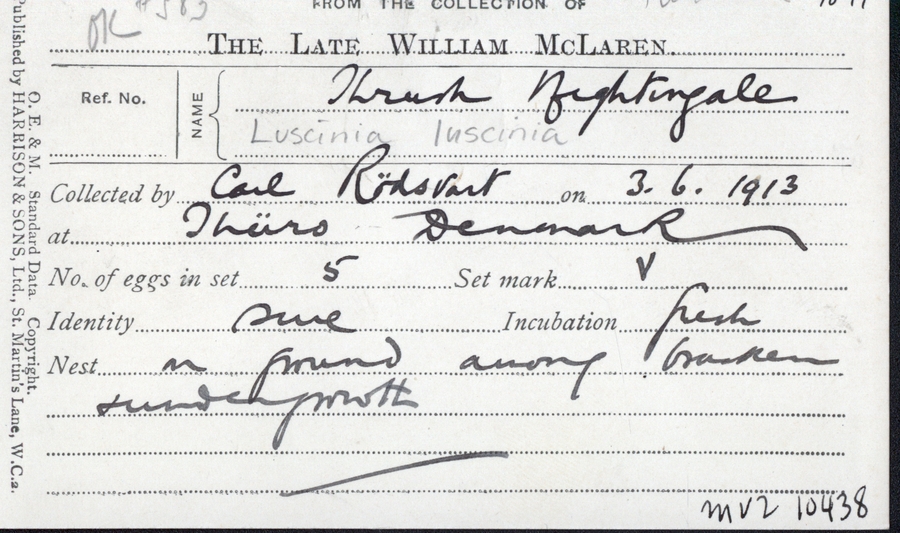 OK #583
FROM THE COLLECTION OF
THE LATE WILLIAM MCLAREN.
Ref. No. NAME Thrush Nightingale
Luscinia luscinia
Collected by Carl Rödsvart on 3.6.1913
at Thüro Denmark
No. of eggs in set 5 Set mark V
Identity sure Incubation fresh
Nest on ground among bracken
& undergrowth
MVZ 10438
Published by HARRISON & SONS, Ltd., St. Martin's Lane, W.C.2.
O. E. & M. Standard Data. Copyright.